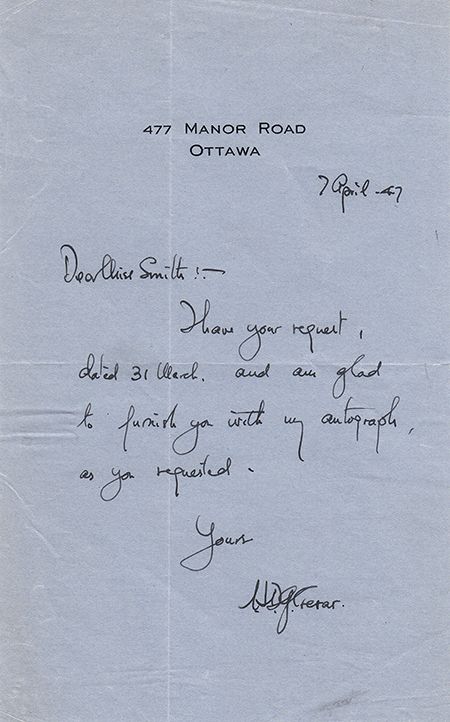 477 MANOR ROAD
OTTAWA
7 April -47
Dear Miss Smith :-
I have your request,
dated 31 March, and am glad
to furnish you with my autograph,
as you requested.
Yours
H.D.G. Crerar.